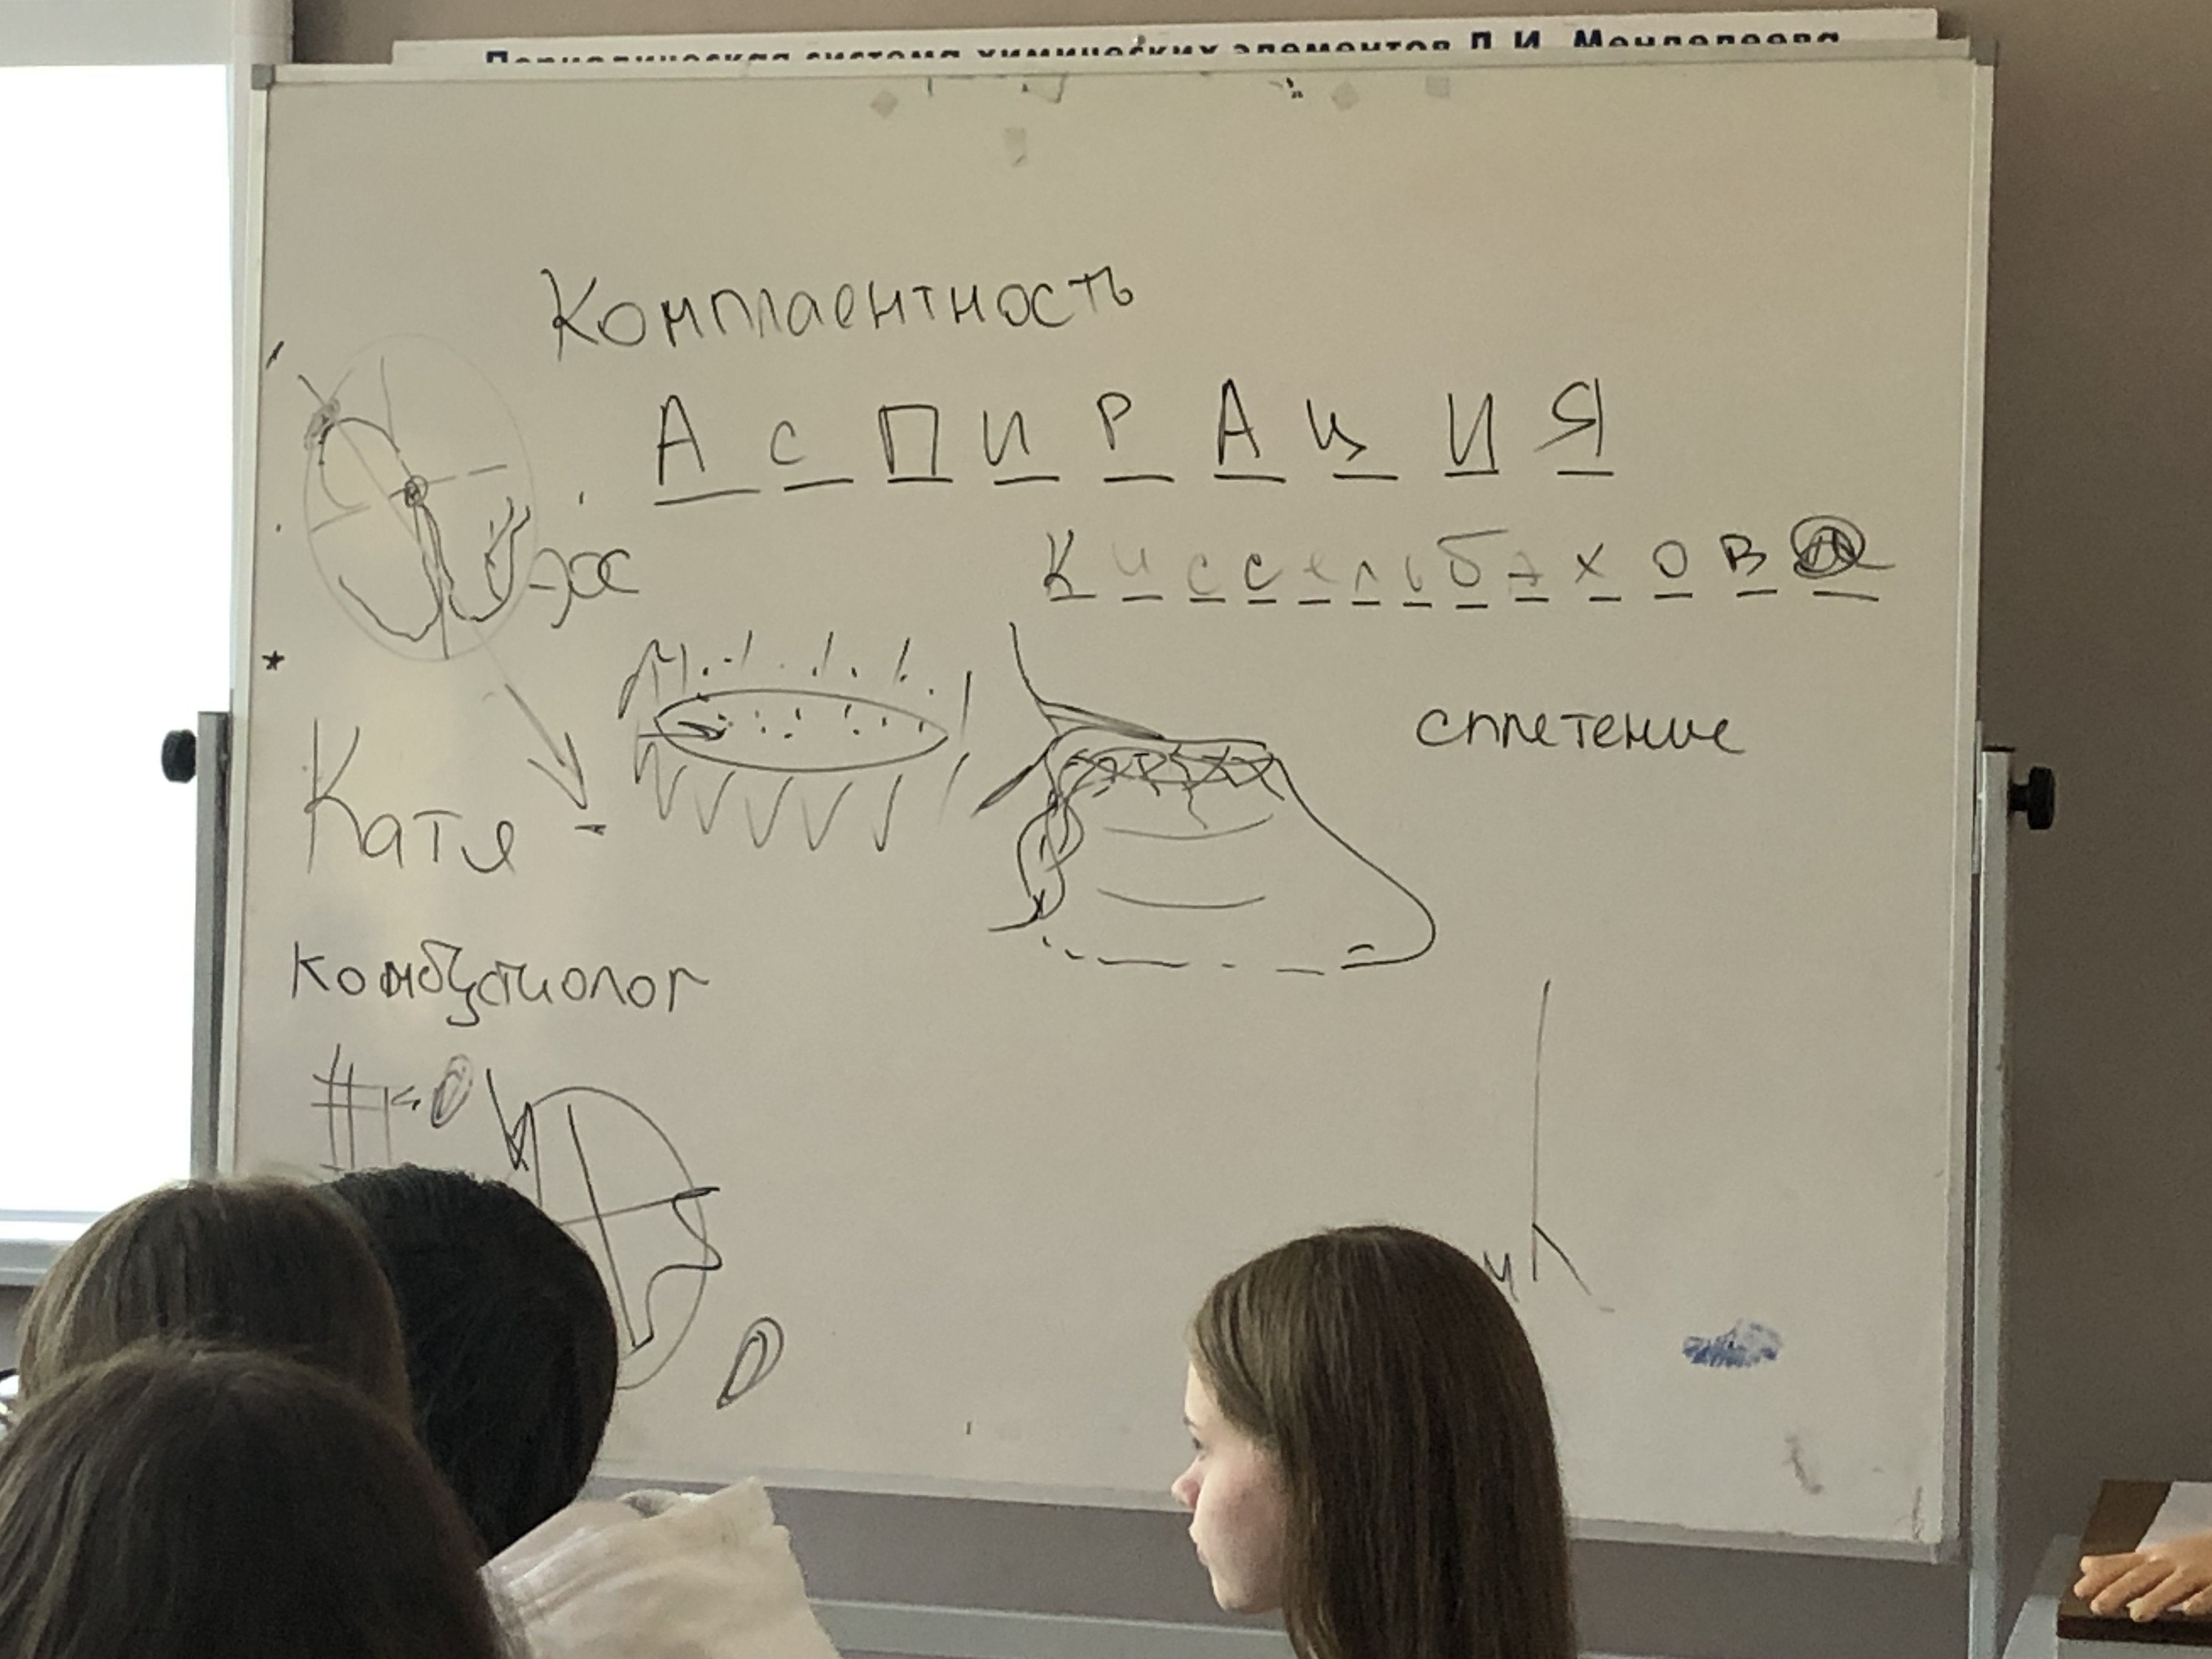 Периодическая система химических элементов Д.И. Менделеева
Комплаентность
АСПИРАЦИЯ
Киссельбахов
эос
сплетение
Катя -
комбустиолог